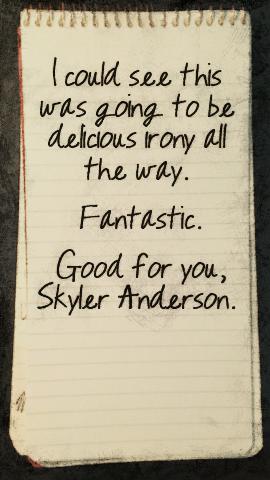 I could see this
was going to be
delicious irony all
the way.
Fantastic.
Good for you,
Skyler Anderson.